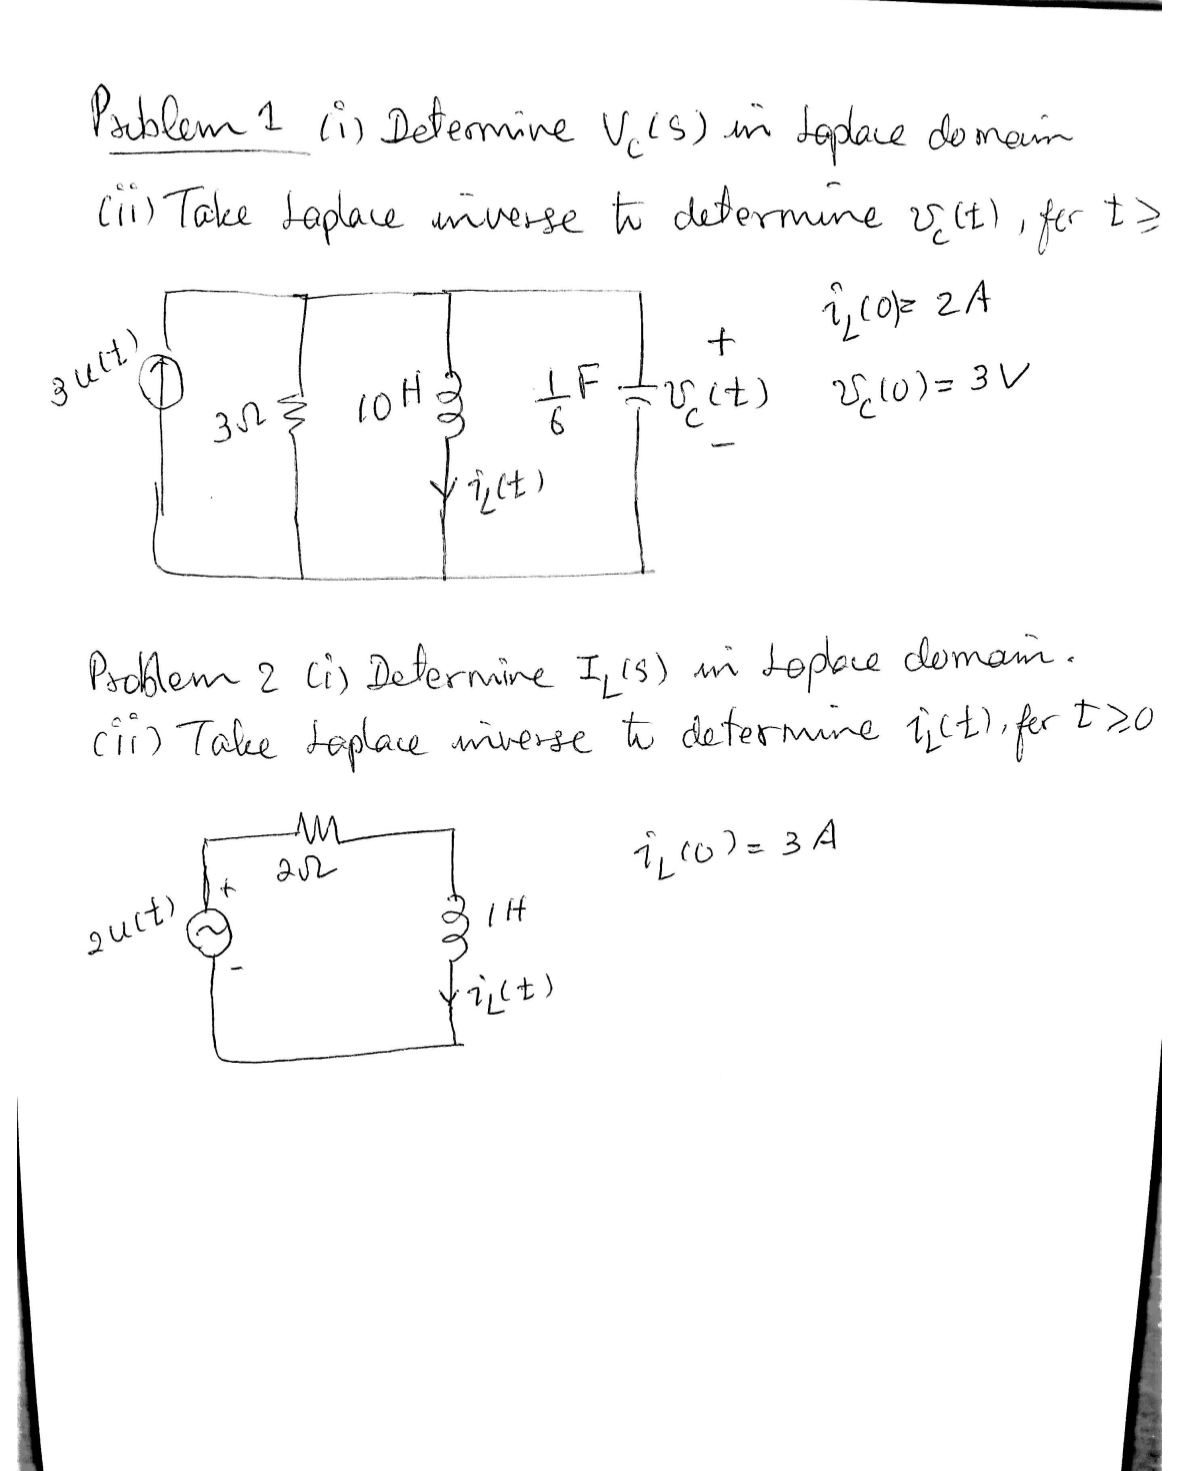 Problem 1 (i) Determine V_c(s) in Laplace domain
(ii) Take Laplace inverse to determine v_c(t), for t ≥
i_L(0) = 2 A
3u(t)
3Ω
10 H
1/6 F
+
v_c(t)
-
v_c(0) = 3 V
i_L(t)
Problem 2 (i) Determine I_L(s) in Laplace domain.
(ii) Take Laplace inverse to determine i_L(t), for t ≥ 0
2Ω
i_L(0) = 3 A
2u(t)
+
-
1 H
i_L(t)